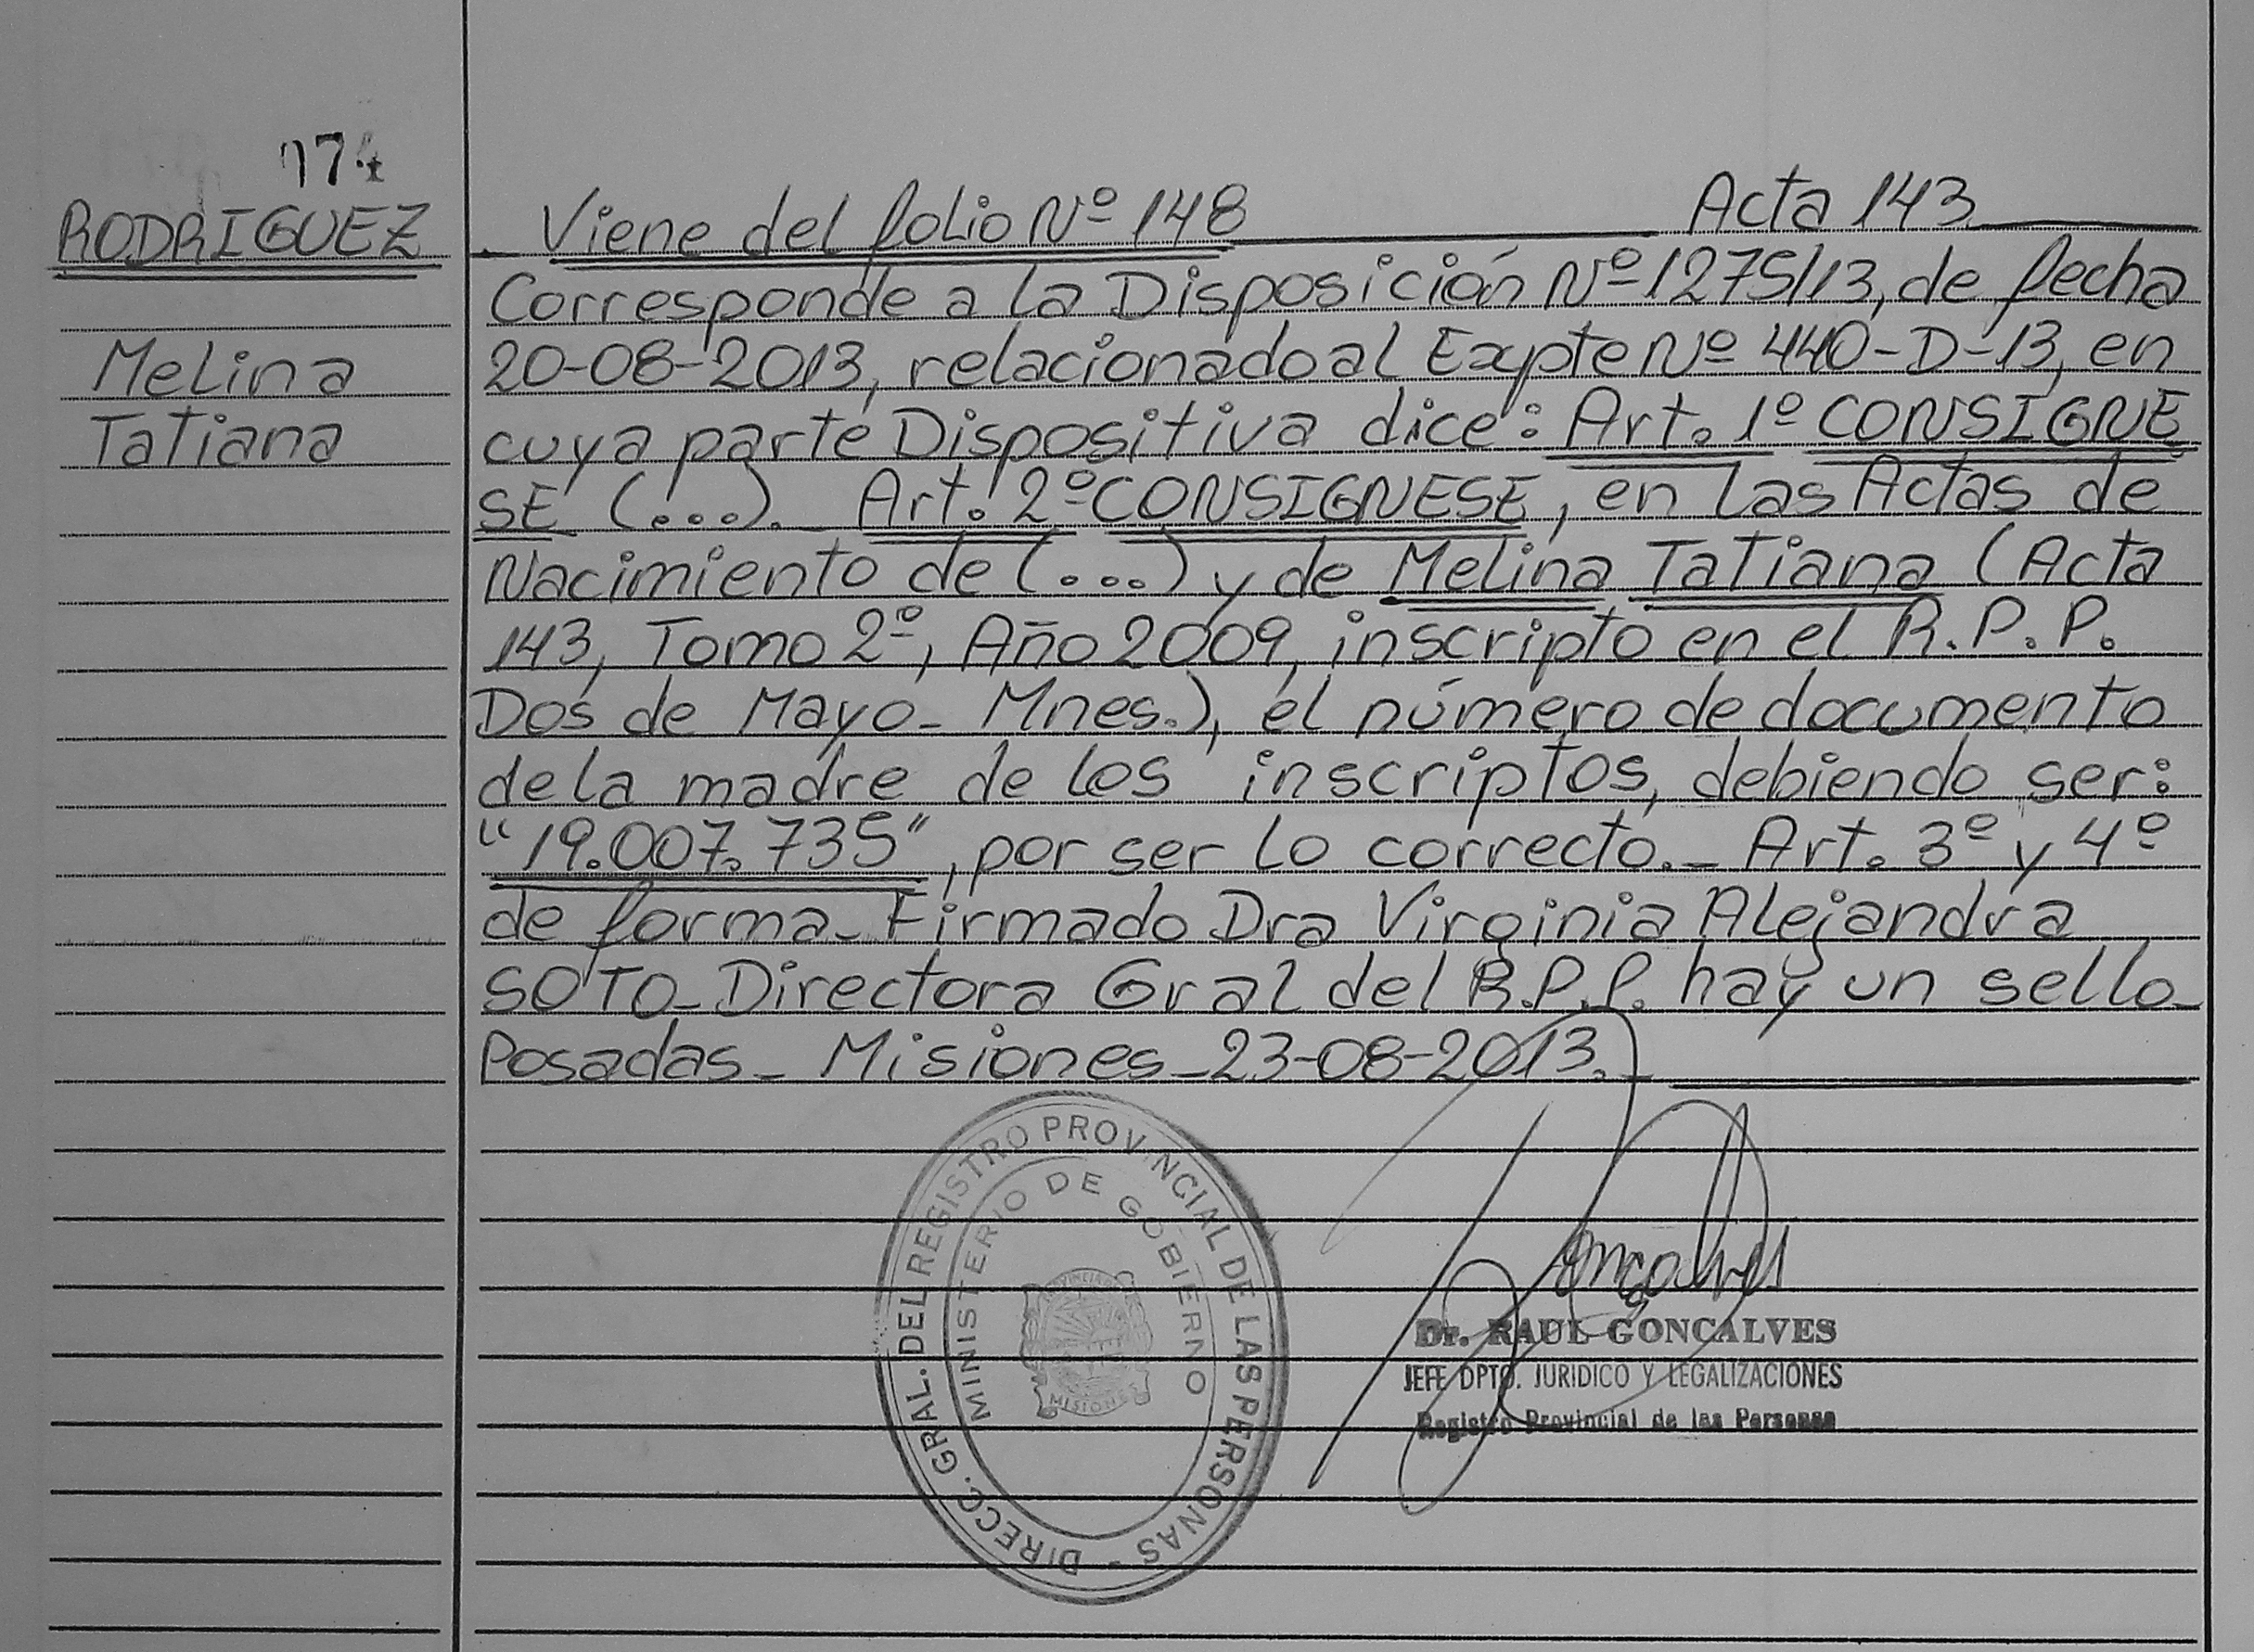 174
RODRIGUEZ
Melina
Tatiana
Viene del folio Nº 148 Acta 143
Corresponde a la Disposición Nº 1275/13, de fecha
20-08-2013, relacionado al Expte Nº 440-D-13, en
cuya parte Dispositiva dice: Art. 1º CONSIGNE
SE (...)._ Art. 2º CONSIGNESE, en las Actas de
Nacimiento de (...) y de Melina Tatiana (Acta
143, Tomo 2º, Año 2009, inscripto en el R.P.P.
Dos de Mayo_ Mnes.), el número de documento
de la madre de los inscriptos, debiendo ser:
"19.007.735", por ser lo correcto._ Art. 3º y 4º
de forma_ Firmado Dra Virginia Alejandra
SOTO_Directora Gral del R.P.P. hay un sello_
Posadas_ Misiones_23-08-2013._
DIRECC. GRAL. DEL REGISTRO PROVINCIAL DE LAS PERSONAS -
MINISTERIO DE GOBIERNO
MISIONES
Goncalves
Dr. RAUL GONCALVES
JEFE DPTO. JURIDICO Y LEGALIZACIONES
Registro Provincial de las Personas